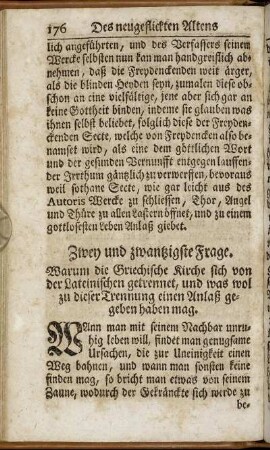 176 Des neugeflickten Altens
lich angeführten, und des Verfassers seinem
Wercke selbsten nun kan man handgreiflich ab-
nehmen, daß die Freydenckenden weit ärger,
als die blinden Heyden seyn, zumalen diese ob-
schon an eine vielfältige, jene aber sich gar an
keine Gottheit binden, indeme sie glauben was
ihnen selbst beliebet, folglich diese der Freyden-
ckenden Secte, welche von Freydencken also be-
namset wird, als eine dem göttlichen Wort
und der gesunden Vernunfft entgegen lauffen-
der Irrthum gäntzlich zu verwerffen, bevoraus
weil sothane Secte, wie gar leicht aus des
Autoris Wercke zu schliessen, Thor, Angel
und Thüre zu allen Lastern öffnet, und zu einem
gottlosesten Leben Anlaß giebet.
Zwey und zwantzigste Frage.
Warum die Griechische Kirche sich von
der Lateinischen getrennet, und was wol
zu dieser Trennung einen Anlaß ge-
geben haben mag.
Wann man mit seinem Nachbar unru-
hig leben will, findet man genugsame
Ursachen, die zur Uneinigkeit einen
Weg bahnen, und wann man sonsten keine
finden mag, so bricht man etwas von seinem
Zaune, wodurch der Gekränckte sich werde zu
be-